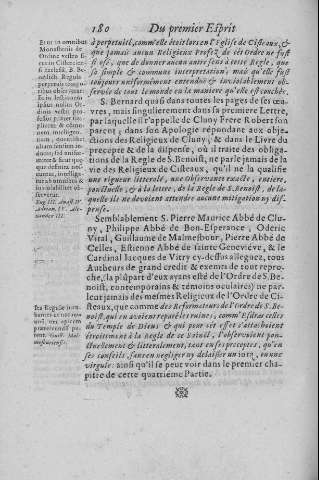 180 Du premier Esprit
à perpetuité, comm'elle étoit lors en l'Eglise de Cisteaux, &
que jamais aucun Religieux Profez de cét Ordre ne fust
si osé, que de donner aucun autre sens à cette Regle, que
sa simple & commune interpretation; mais qu'elle fust
toûjours uniformément entenduë & inviolablement ob-
servée de tout le monde en la maniere qu'elle est couchée.
S. Bernard quasi dans toutes les pages de ses œu-
vres, mais singulierement dans sa premiere Lettre,
par laquelle il r'appelle de Cluny Frere Robert son
parent, dans son Apologie répondant aux obje-
ctions des Religieux de Cluny, & dans le Livre du
precepte & de la dispense, où il traite des obliga-
tions de la Regle de S. Benoist, ne parle jamais de la
vie des Religieux de Cisteaux, qu'il ne la qualifie
une vigueur litterale, une Observance exacte, entiere,
ponctuelle, & à la lettre, de la Regle de S. Benoist, de la-
quelle ils ne devoient attendre aucune mitigation ny dis-
pense.
Semblablement S. Pierre Maurice Abbé de Clu-
ny, Philippe Abbé de Bon-Esperance, Oderic
Vital, Guillaume de Malmesbour, Pierre Abbé de
Celles, Estienne Abbé de sainte Geneviéve, & le
Cardinal Jacques de Vitry cy-dessus alleguez, tous
Autheurs de grand credit & exempts de tout repro-
che, (la plûpart d'eux ayans esté de l'Ordre de S. Be-
noist, contemporains & témoins oculaires) ne par-
lent jamais des mesmes Religieux de l'Ordre de Ci-
steaux, que comme des Reformateurs de l'Ordre de S. Be-
noist, qui en avoient reparé les ruines, comm'Esdras celles
du Temple de Dieu; & qui pour cét effet s'attachoient
étroittement à la regle de ce Saint, l'observoient pon-
ctuellement & litteralement, tout en ses preceptes, qu'en
ses conseils, sans en negliger ny delaisser un iota, ny une
virgule: ainsi qu'elle se peut voir dans le premier cha-
pitre de cette quatriéme Partie.
Et ut in omnibus
Monasteriis de
Ordine vestro si-
cut in Cistercien-
si Ecclesia, B. Be-
nedicti Regula
perpetuis tempo-
ribus observetur.